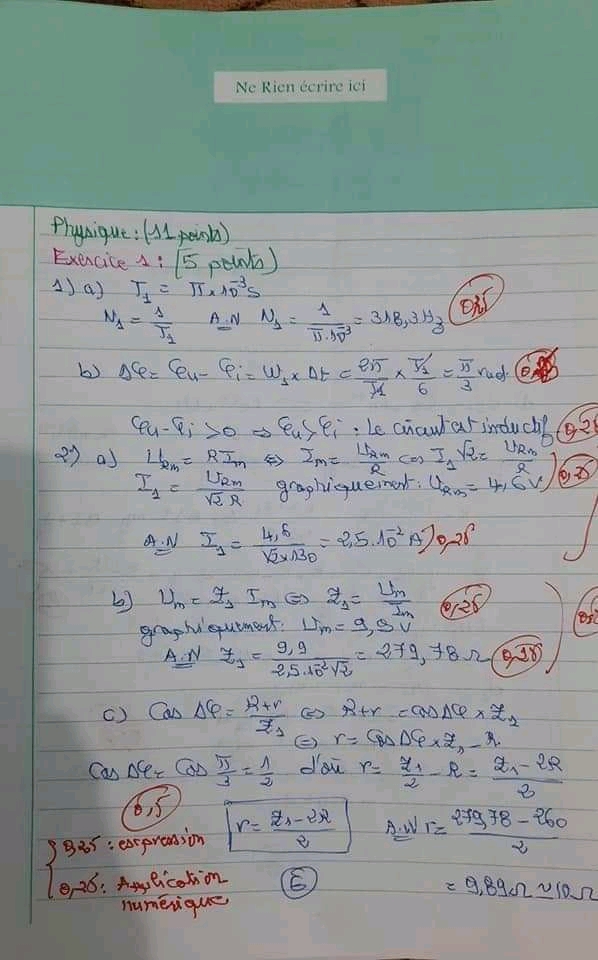 Ne Rien écrire ici
Physique : (11 points)
Exercice 1 : (5 points)
1) a) T₁ = π×10⁻³s
N₁ = 1/T₁ A.N N₁ = 1/π.10⁻³ = 318,3Hz 0,25
b) Δφ = φu - φi = ω₁ × Δt = 2π/T₁ × T₁/6 = π/3 rad
φu - φi > 0 ⇒ φu > φi : Le circuit est inductif 0,25
2) a) URm = R Im ⇔ Im = URm/R ⇔ I₁√2 = URm/R 0,25
I₁ = URm/√2 R graphiquement : URm = 4,6 V
A.N I₁ = 4,6/√2×130 = 2,5.10⁻² A 0,25
b) Um = Z₁ Im ⇔ Z₁ = Um/Im 0,25
graphiquement : Um = 9,9 V
A.N Z₁ = 9,9/2,5.10⁻²√2 = 279,78 Ω 0,25
c) Cos Δφ = R+r/Z₁ ⇔ R+r = cos Δφ × Z₁
⇔ r = Cos Δφ × Z₁ - R
Cos Δφ = Cos π/3 = 1/2 d'où r = Z₁/2 - R = Z₁-2R/2
0,5
r = Z₁-2R/2 A.N r = 279,78-260/2
0,25 : expression
0,25 : Application numérique
= 9,89 Ω ≃ 10 Ω